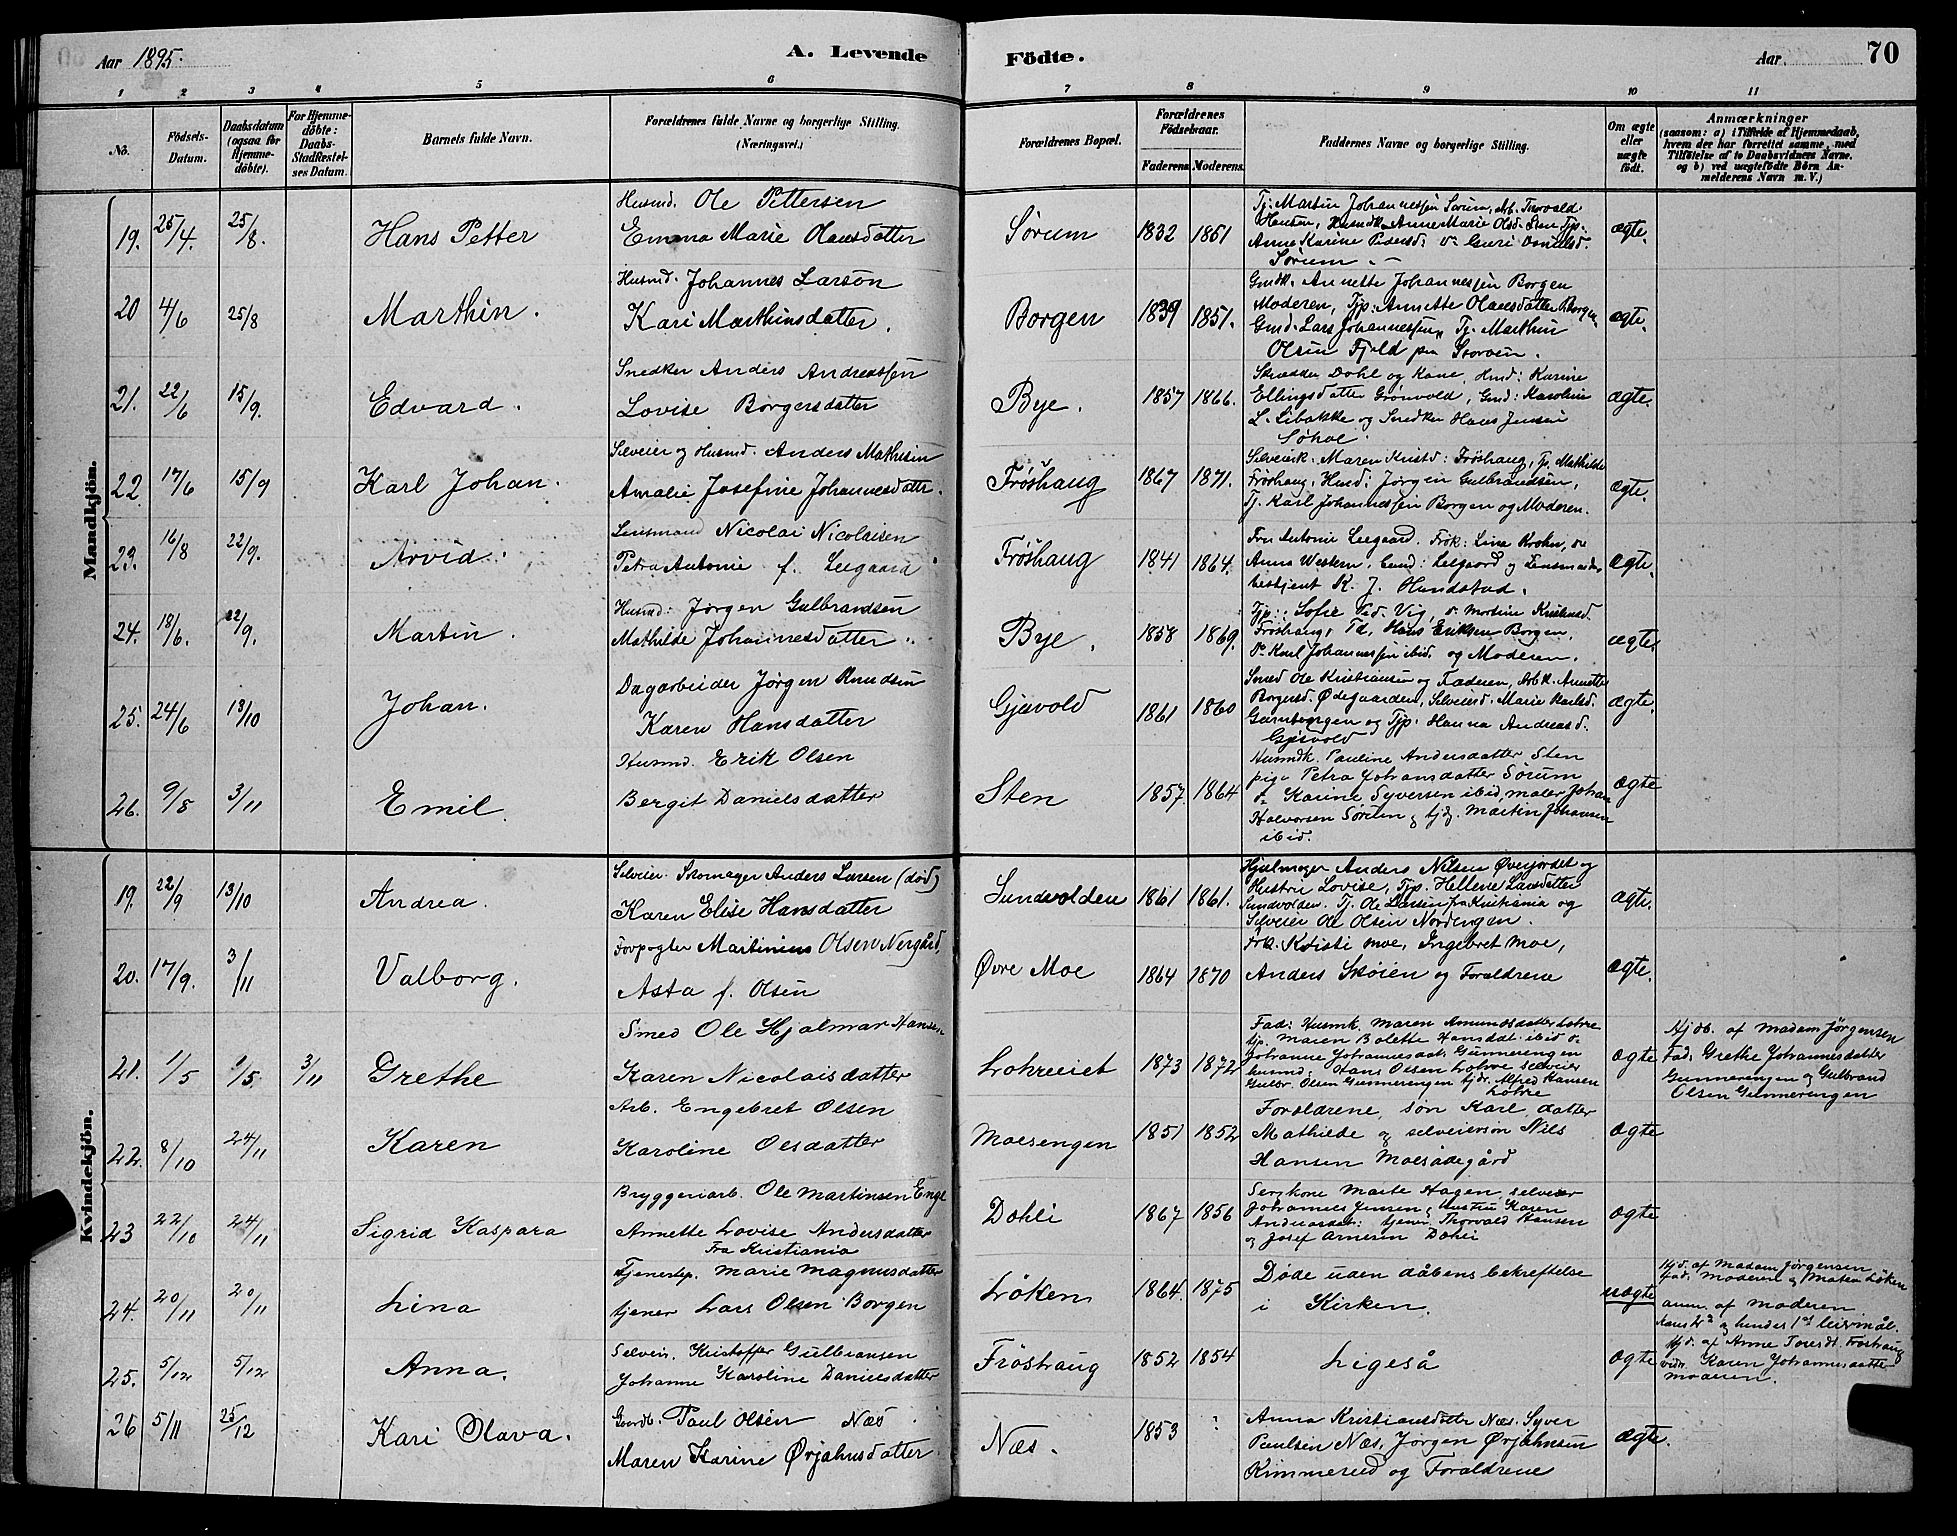 Aar 1895.
A. Levende
Födte.
Aar
70
1 2 3 4 5 6 7 8 9 10 11
No.
Födsels-Datum.
Daabsdatum (ogsaa for Hjemmedöbte).
For Hjemmedöbte: Daabs-Stadfæstelses Datum.
Barnets fulde Navn.
Forældrenes fulde Navne og borgerlige Stilling. (Næringsvei.)
Forældrenes Bopæl.
Forældrenes Födselsaar.
Faderens. Moderens.
Faddernes Navne og borgerlige Stilling.
Om ægte eller uægte födt.
Anmærkninger
(saasom: a) i Tilfælde af Hjemmedaab, hvem der har forrettet samme, med Tilföielse af to Daabsvidners Navne, og b) ved uægtefödte Börn Anmelderens Navn m. V.)
Mandkjön.
19. 25/4. 25/8. Hans Petter
Husmd. Ole Pettersen
Emma Marie Hansdatter
Sørum 1832 1851
Tj. Martin Johannessen Sørum, Arb. Thorvald
Hansen, Husmdk. Anne Marie Olsd. Sten Tjp.
Anne Karine Pedersd. Guri
Sørum
ægte.
20 4/6 25/8 Marthin.
Husmd. Johannes Larsøn
Kari Marthinsdatter.
Borgen 1839 1851.
Gmdk. Annette Johannessen Borgen
Moderen, Tjp. Annette Olausdatter Borgen
Gmd. Lars Johannessen Tj. Marthin
Olsen Fjeld
ægte.
21. 22/6 15/9. Edvard.
Snedker Anders Andreassen
Lovise Borgersdatter
Bye. 1857 1866.
Skrædder Dohl og Kone, Hmd: Karine
Ellingsdatter Grønvold, Gmd: Karoline
L. Libakke og Snedker Hans Jensen
Søhol
ægte.
22 17/6 15/9 Karl Johan.
Selveier og Husmd. Anders Mathisen
Amalie Josefine Johannesdatter.
Frøshaug 1867 1871.
Selveierk. Maren Kristd: Frøshaug, Tp. Mathilde
Frøshaug, Hmd: Jørgen Gulbrandsen,
Tj. Karl Johannessen Borgen og Moderen.
ægte.
23. 16/8 22/9. Arvid.
Lensmand Nicolai Nicolaisen
Petra Antonie f. Leegaard
Frøshaug 1841 1864.
Fru Antonie Leegaard. Frøk: Lina Krohn, do
Anna Western, Cand: Leegaard og Lensmands
betjent K. J. Hundstad.
ægte.
24. 18/6. 22/9. Martin.
Husmd: Jørgen Gulbrandsen
Mathilde Johannesdatter.
Bye. 1858 1869.
Tjp: Sofie Ped. Vig,
Frøshaug, Td. Hans Eriksen Borgen,
Do Karl Johannessen ibid. og Moderen.
ægte.
25. 24/6 13/10 Johan.
Dagarbeider Jørgen Knudsen
Karen Hansdatter
Gjesvold 1861 1860
Smed Ole Kristiansen og Faderen, Arb.k. Annette
Borgersd. Ødegaarden, Selveierd. Marie Karlsd.
og Tjp. Hanna Andreasd.
Gjesvold
ægte.
26. 9/5 3/11 Emil.
Husmd. Erik Olsen
Bergit Danielsdatter
Sten 1857 1864
Husmdk. Pauline Andersdatter Sten
pige Petra Johansdatter Sørum
do Karine Syversen ibid, maler Johan
Halvorsen Sørum og tjg. Martin Johansen
ibid.
ægte
Kvindekjön.
19. 22/9 13/10 Andrea.
Selveier. Skomager Anders Larsen (død)
Karen Elise Hansdatter
Sundvolden 1861 1861.
Hjulmager Anders Nilsen Øverjordet og
Hustru Lovise, Tjp. Hellene Larsdatter
Sundvolden. Tj. Ole Larsen fra Kristiania og
Selveier Ole Olsen Nordengen.
ægte.
20. 17/9. 3/11 Valborg.
Forpagter Martinius Olsen Nergård,
Asta f. Olsen
Øvre Moe 1864 1870
Frk. Kristi Moe, Ingebret Moe,
Anders Skøien og Forældrene
ægte.
21. 1/5 1/5 3/11 Grethe
Smed Ole Hjalmar Hansen
Karen Nicolaisdatter
Lohreeiet 1873 1872
Fad: Husmk. Maren Amundsdatter Lohre
tjp. Maren Bolette Hansdat. ibid do
Johanne Johannesdat. Gunnerengen
husmd: Hans Olsen Lohre selveier
Gulbr. Olsen Gunnerengen tjdr. Alfred Hansen
Lohre
ægte
Hjdb. af Madam Jörgensen
Fad. Grethe Johannesdatter
Gunnerengen og Gulbrand
Olsen Gunnerengen
22. 8/10 24/11 Karen
Arb. Engebret Olsen
Karoline Olsdatter
Moesengen 1851 1852
Forældrene, søn Karl, datter
Mathilde og selveiersøn Nils
Hansen Moesødegård
ægte
23 22/10 24/11 Sigrid Kaspara
Bryggeriarb. Ole Martinsen Enge
Annette Lovise Andersdatter
Fra Kristiania
Dohli 1867 1856
Marte Hagen, selveier
Johannes Jensen, Hustru Karen
Andreasdat: tjener Thorvald Hansen
og Josef Arnesen Dohli
ægte
24. 20/11 20/11 Lina
Tjenestep. Marie Magnusdatter
tjener Lars Olsen Borgen
Løken 1864. 1875
Døde uden dåbens bekreftelse
i Kirken.
uægte
Hjd. af Madam Jørgensen
fad. Moderen og Mathea Löken
anm. af Moderen.
Hans 2det og hendes 1ste leiermål.
25. 5/12 5/12 Anna.
Selveier. Kristoffer Gulbransen
Johanne Karoline Danielsdatter
Frøshaug 1852 1854
Ligeså
ægte
Hjd. af Anne Toresdt. Frøshaug
vidn. Karen Johannesdatter
moderen.
26 5/11 25/12 Kari Olava.
Gaardb. Paul Olsen Næs.
Maren Karine Ørjahnsdatter
Næs. 1853
Anna Kristiansdatter Næs. Syver
Paulsen Næs, Jørgen Ørjahnsen
Kimmerud og Forældrene
ægte.